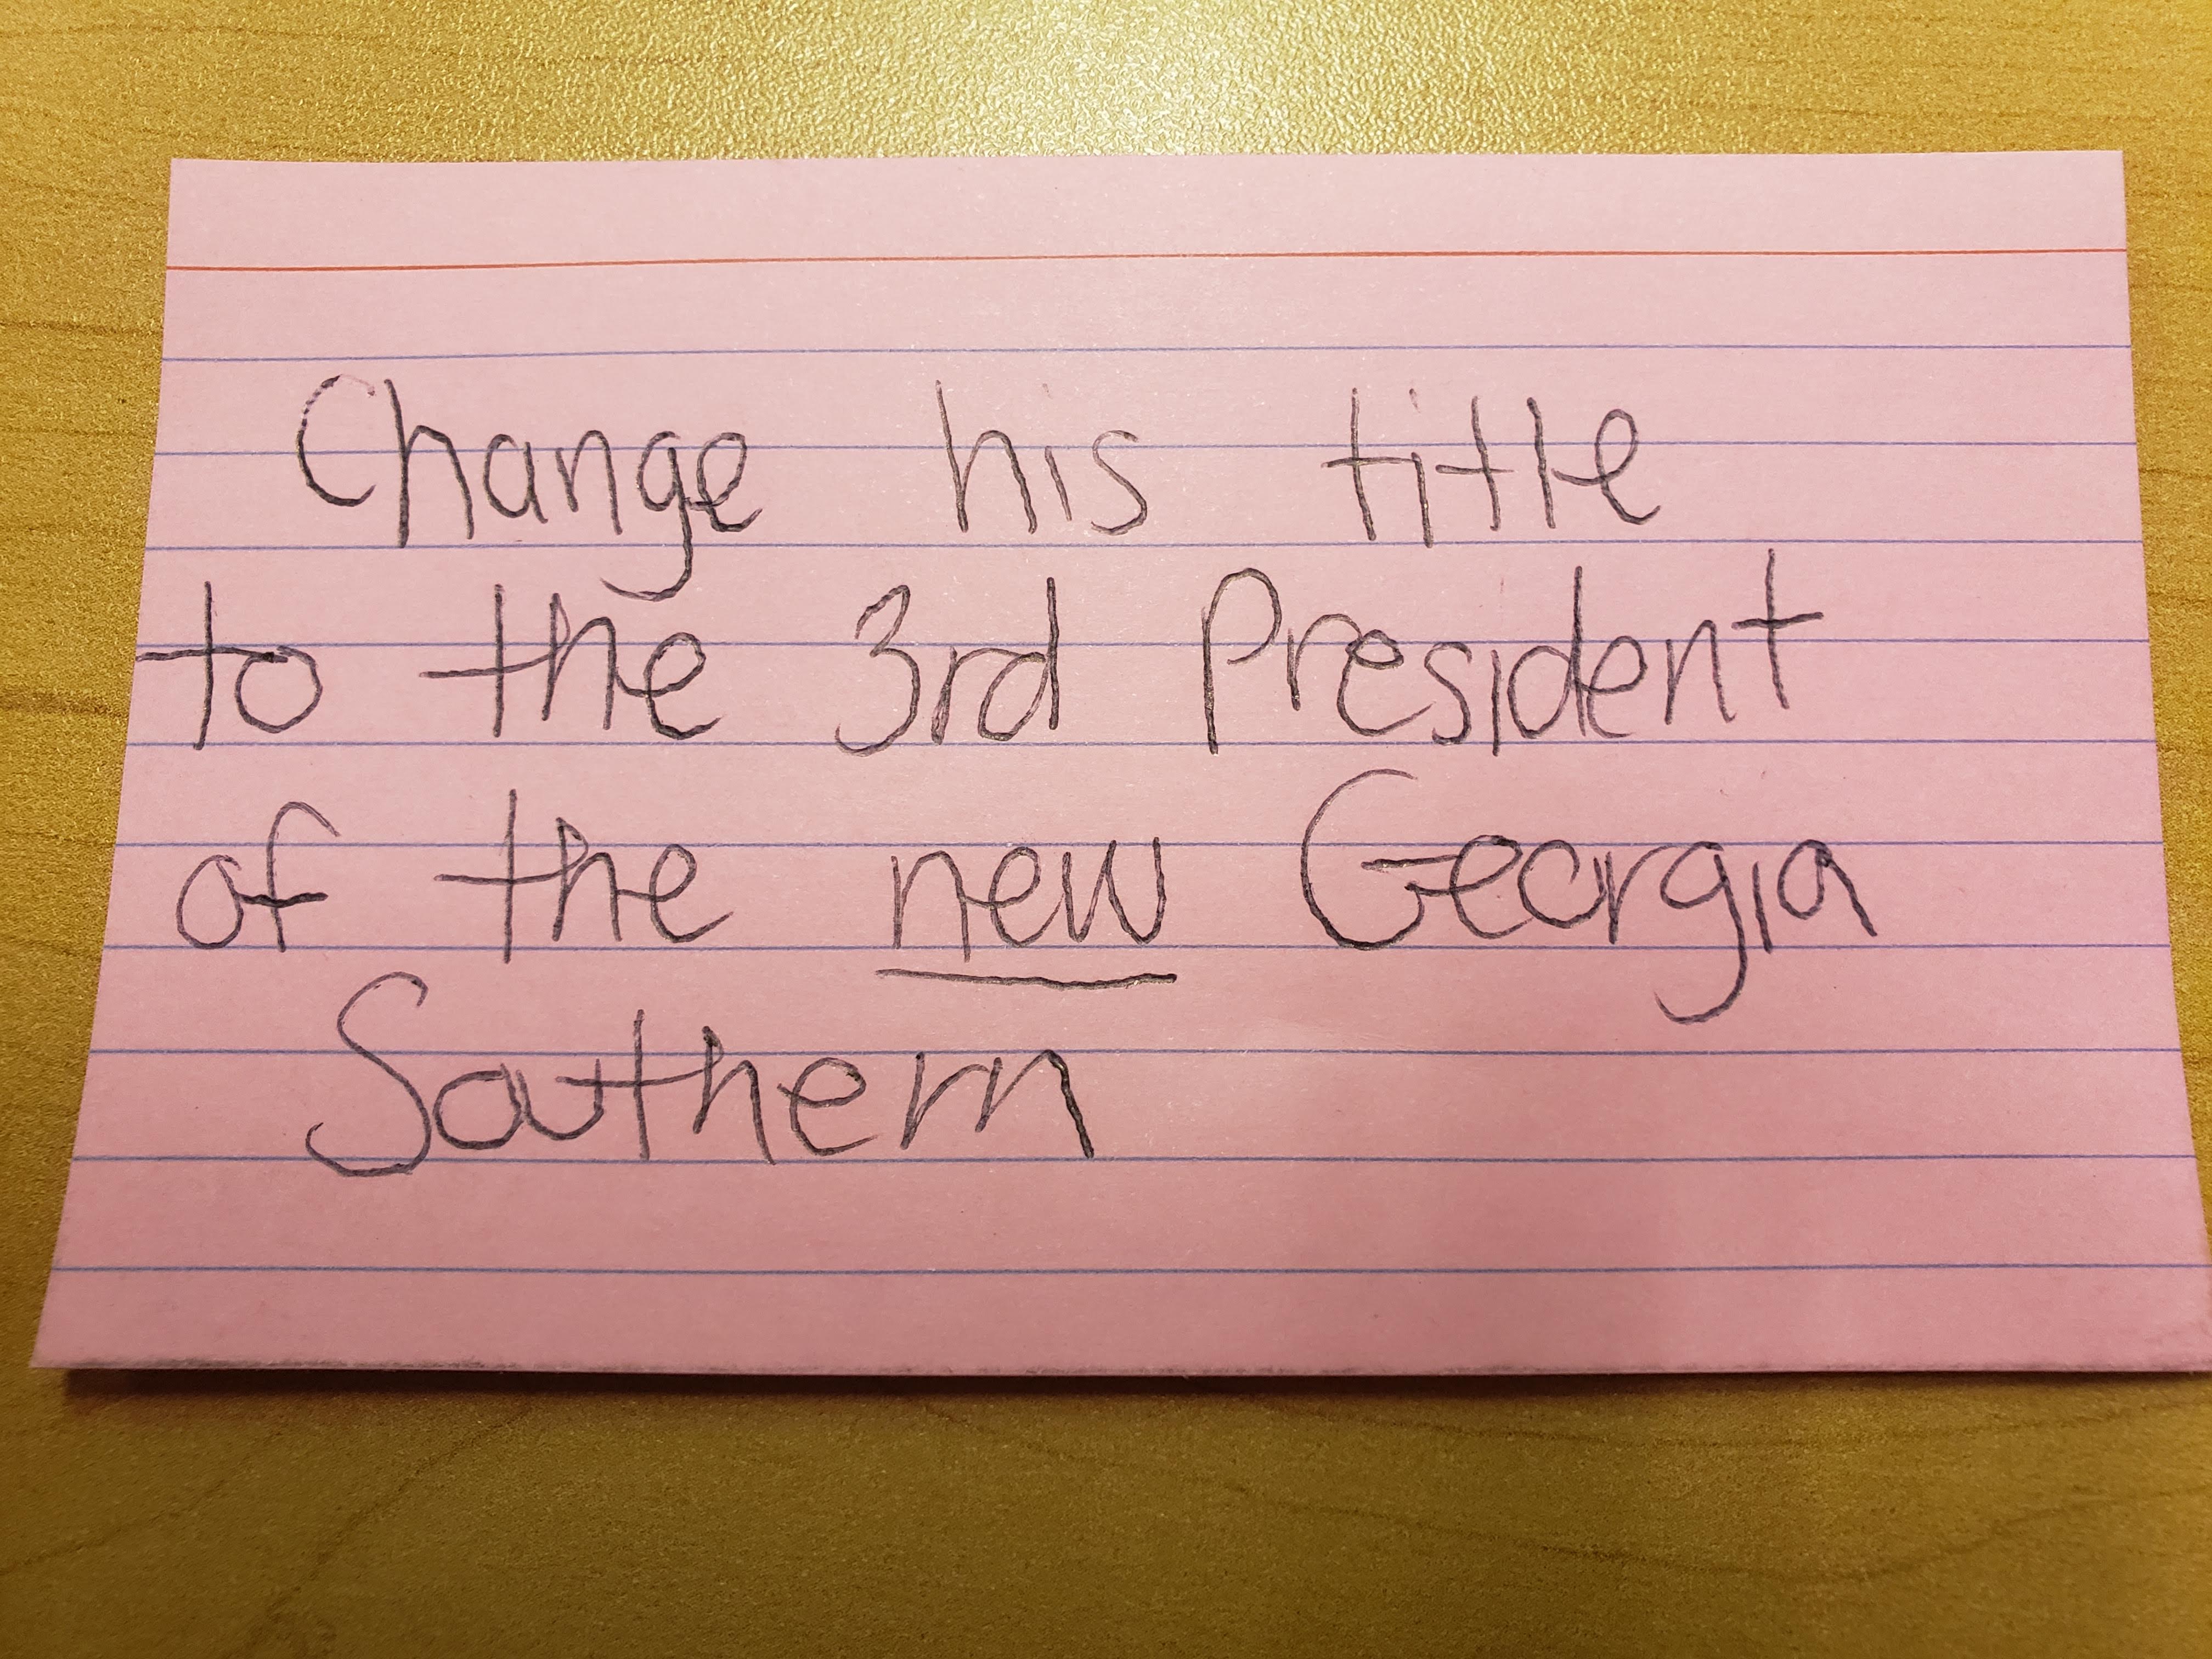 Change his title
to the 3rd President
of the new Georgia
Southern